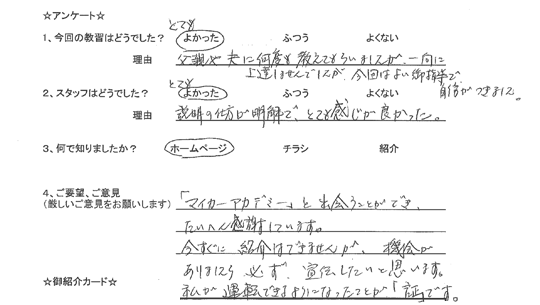 ☆アンケート☆
とても
1、今回の教習はどうでした? よかった ふつう よくない
理由 父親や夫に何度も教えてもらいましたが、一向に
上達しませんでしたが、今回はよい御指導で
自信がつきました。
とても
2、スタッフはどうでした? よかった ふつう よくない
理由 説明の仕方が明解で、とても感じが良かった。
3、何で知りましたか? ホームページ チラシ 紹介
4、ご要望、ご意見
(厳しいご意見をお願いします)
「マイカーアカデミー」と出会うことができ、
たいへん感謝しています。
今すぐに紹介はできませんが、機会が
ありましたら必ず、宣伝したいと思います。
☆御紹介カード☆
私が運転できるようになったことが「証」です。